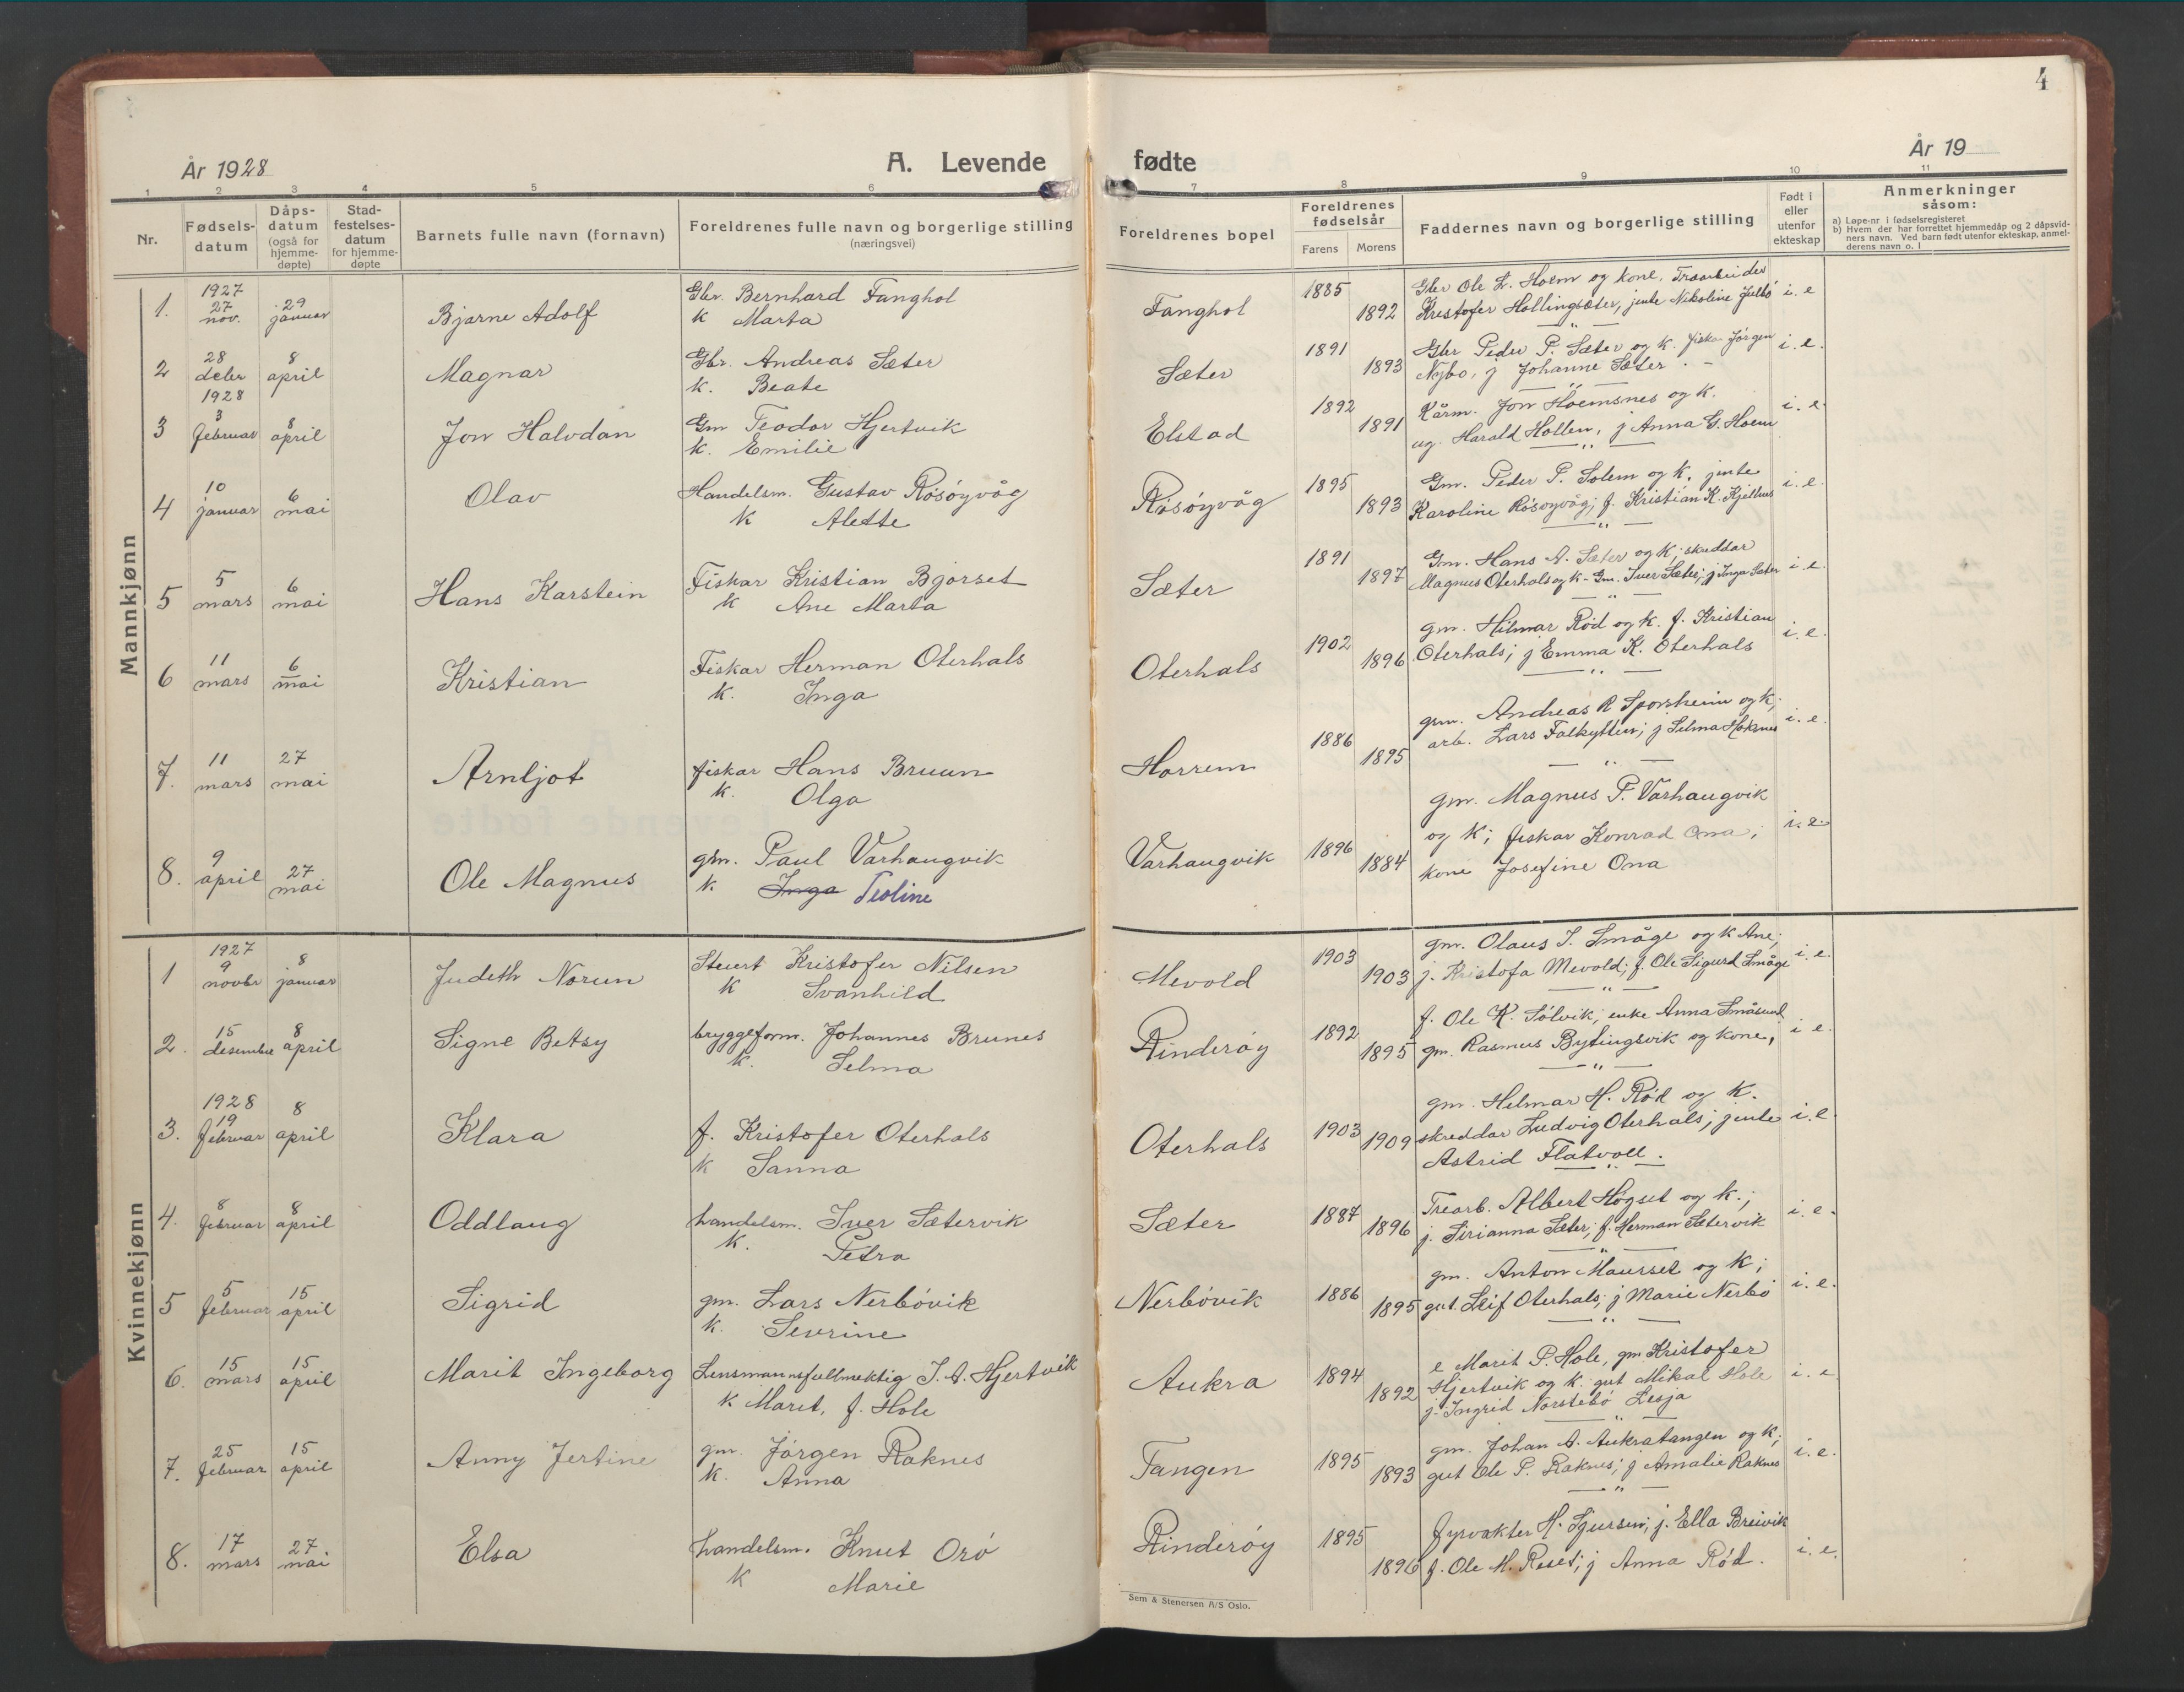 4
År 1928
A. Levende fødte
År 19
1 2 3 4 5 6 7 8 9 10 11
Nr.
Fødselsdatum
Dåpsdatum (også for hjemmedøpte)
Stadfestelsesdatum for hjemmedøpte
Barnets fulle navn (fornavn)
Foreldrenes fulle navn og borgerlige stilling (næringsvei)
Foreldrenes bopel
Foreldrenes fødselsår
Farens Morens
Faddernes navn og borgerlige stilling
Født i eller utenfor ekteskap
Anmerkninger såsom:
a) Løpe-nr i fødselsregisteret
b) Hvem der har forrettet hjemmedåp og 2 dåpsvidners navn. Ved barn født utenfor ekteskap, anmelderens navn o. l
Mannkjønn
1. 1927 27 nov. 29 januar Bjarne Adolf Gbr. Bernhard Tanghol
k Marta
Tanghol 1885 1892 Gbr Ole L. Hoem og kone. Trearbeider
Kristofer Hollingsæter, jente Nikoline Julbö i. e
2 28 debr 8 april Magnar Gbr. Andreas Sæter
k. Beate
Sæter 1891 1893 Gbr Peder P. Sæter og k. fisker Jørgen
Nybo, j Johanne Sæter. i. e.
3 1928 3 februar 8 april Jon Halvdan Gm Teodor Hjertvik
k. Emilie
Elstad 1892 1891 Kårm. Jon Hoemsnes og k.
ug. Harald Hollen, j Anna G. Hoem i. e.
4 10 januar 6 mai Olav Handelsm. Gustav Rösöyvåg
k Alette
Rösöyvåg 1895 1893 Gm. Peder P. Solem og k, jente
Karoline Rösoyvåg; f. Kristian K. Kjelhus i. e.
5 5 mars 6 mai Hans Karstein Fiskar Kristian Bjørset
k Ane Marta
Sæter 1891 1897 Gm. Hans A. Sæter og k; skuddar
Magnus Oterhals og k - Gm. Iver Sæter; j Inga Sæter i. e.
6 11 mars 6 mai Kristian Fiskar Herman Oterhals
k. Inga
Oterhals 1902 1896 gm. Hilmar Röd og k. f. Kristian
Oterhals; j Emma K. Oterhals i. e.
7. 11 mars 27 mai Arnljot fiskar Hans Bruun
k. Olga
Horrem 1886 1895 gm. Andreas R Sporsheim og k;
arb. Lars Falkhytten; j Selma Hoksnes i. e.
8. 9 april 27 mai Ole Magnus gm. Paul Varhaugvik
k Inga Teoline
Varhaugvik 1896 1884 gm. Magnus P. Varhaugvik
og k; fiskar Konrad Ona;
kone Josefine Ona i. e.
Kvinnekjønn
1 1927 9 novbr 8 januar Judeth Norun Stuert Kristofer Nilsen
k Svanhild
Mevold 1903 1903 gm. Olaus I. Småge og k Ane;
j. Kristofa Mevold; f. Ole Sigurd Småge i. e.
2. 15 desember 8 april Signe Betsy bryggeform. Johannes Brunes
k. Selma
Rinderöy 1892 1895 f. Ole K. Sólvik; enke Anna Småsund
gm. Rasmus Bytingsvik og kone, i e.
3. 1928 19 februar 8 april Klara f. Kristofer Oterhals
k Sanna
Oterhals 1903 1909 gm. Helmar H. Röd og k.
skreddar Ludvig Oterhals; jente
Astrid Flatvoll. i. e.
4. 8 februar 8 april Oddlaug handelsm. Iver Sætervik
k. Petra
Sæter 1887 1896 Trearb. Albert Högset og k.;
j. Sirianna Sæter; f. Herman Sætervik i. e.
5 5 februar 15 april Sigrid gm. Lars Nerbövik
k. Sevrine
Nerbövik 1886 1895 gm. Anton Maurset og k;
gut. Leif Oterhals; j Marie Nerbö i. e.
6. 15 mars 15 april Marit Ingeborg Lensmannsfullmektig J. A. Hjertvik
k Marit, f. Hole
Aukra 1894 1892 e Marit P. Hole, gm Kristofer
Hjertvik og k. gut Mikal Hole
j. Ingrid Norstebö Lesja i. e
7. 25 februar 15 april Anny Jertine gm. Jörgen Raknes
k. Anna
Tangen 1895 1893 gm. Johan A. Aukratangen og k;
gut Ole P. Raknes; j Amalie Raknes i. e.
8. 17 mars 27 mai Elsa handelsm. Knut Orö
k Marie
Rinderöy 1895 1896 fyrvakter H. Sjursen; j. Ella Breivik
f. Ole M. Reset; j Anna Röd. i. e.
Sem & Stenersen A/S Oslo.